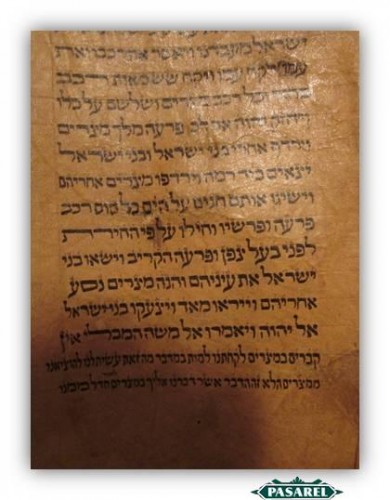 ישראל מעבדנו ויאסר את רכבו ואת
עמו לקח עמו ויקח שש מאות רכב
בחור וכל רכב מצרים ושלשם על כלו
ויחזק יהוה את לב פרעה מלך מצרים
וירדף אחרי בני ישראל ובני ישראל
יצאים ביד רמה וירדפו מצרים אחריהם
וישיגו אותם חנים על הים כל סוס רכב
פרעה ופרשיו וחילו על פי החירת
לפני בעל צפן ופרעה הקריב וישאו בני
ישראל את עיניהם והנה מצרים נסע
אחריהם וייראו מאד ויצעקו בני ישראל
אל יהוה ויאמרו אל משה המבלי אין
קברים במצרים לקחתנו למות במדבר מה זאת עשית לנו להוציאנו
ממצרים הלא זה הדבר אשר דברנו אליך במצרים חדל ממנו
PASAREL